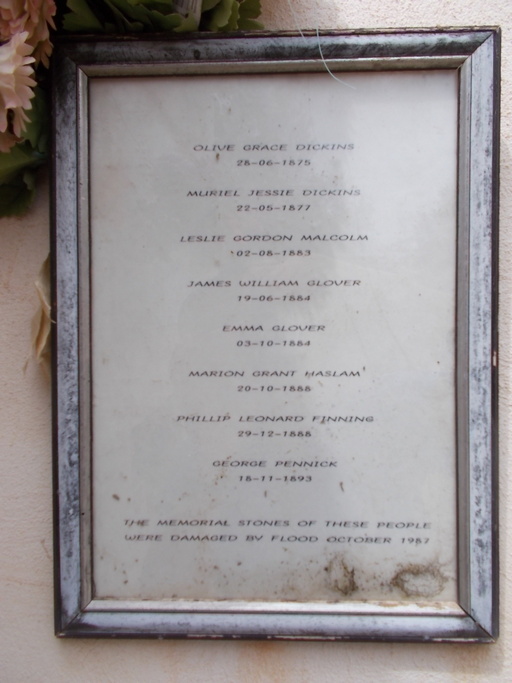 OLIVE GRACE DICKINS
28-06-1875
MURIEL JESSIE DICKINS
22-05-1877
LESLIE GORDON MALCOLM
02-08-1883
JAMES WILLIAM GLOVER
19-06-1884
EMMA GLOVER
03-10-1884
MARION GRANT HASLAM
20-10-1888
PHILLIP LEONARD FINNING
29-12-1888
GEORGE PENNICK
18-11-1893
THE MEMORIAL STONES OF THESE PEOPLE
WERE DAMAGED BY FLOOD OCTOBER 1987